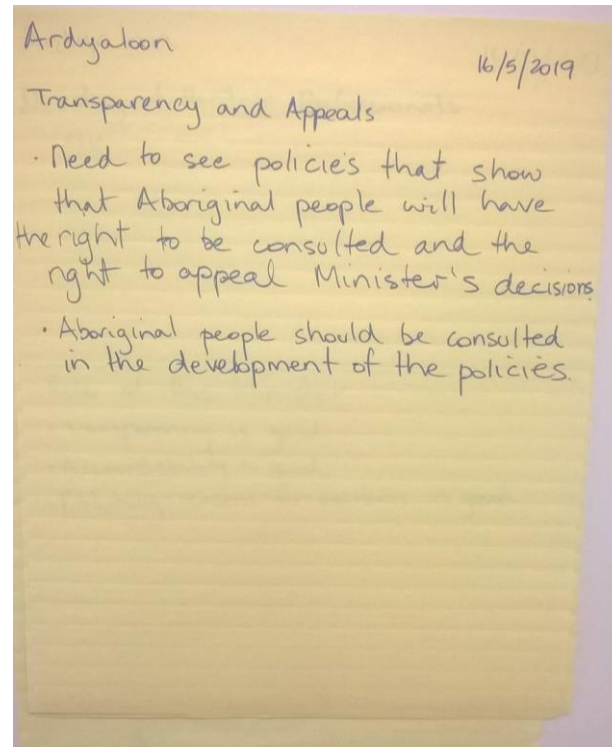 Ardyaloon
16/5/2019
Transparency and Appeals
· Need to see policies that show
that Aboriginal people will have
the right to be consulted and the
right to appeal Minister's decisions
· Aboriginal people should be consulted
in the development of the policies.